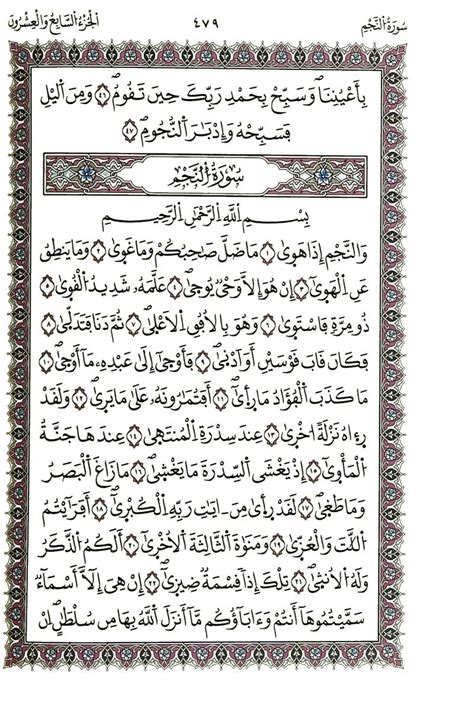 سُورَةُ النَّجْمِ
٤٧٩
الجُزْءُ السَّابِعُ وَالْعِشْرُونَ
بِأَعْيُنِنَا وَسَبِّحْ بِحَمْدِ رَبِّكَ حِينَ تَقُومُ ٤٦ وَمِنَ اَلَيْلِ
فَسَبِّحْهُ وَإِدْبَٰرَ اَلنُّجُومِ ٤٧
سُورَةُ اَلنَّجْمِ
بِسْمِ اِللَّهِ اِلرَّحْمَٰنِ اِلرَّحِيمِ
وَالنَّجْمِ إِذَا هَوَىٰ ١ مَا ضَلَّ صَاحِبُكُمْ وَمَا غَوَىٰ ٢ وَمَا يَنطِقُ
عَنِ اِلْهَوَىٰ ٣ إِنْ هُوَ إِلَّا وَحْيٌ يُوحَىٰ ٤ عَلَّمَهُۥ شَدِيدُ اُلْقُوَىٰ ٥
ذُو مِرَّةٖ فَاسْتَوَىٰ ٦ وَهُوَ بِالْأُفُقِ اِلْأَعْلَىٰ ٧ ثُمَّ دَنَا فَتَدَلَّىٰ ٨
فَكَانَ قَابَ قَوْسَيْنِ أَوَ اَدْنَىٰ ٩ فَأَوْحَىٰ إِلَىٰ عَبْدِهِۦ مَا أَوْحَىٰ ١٠
مَا كَذَبَ اَلْفُؤَادُ مَا رَأَىٰ ١١ أَفَتُمَٰرُونَهُۥ عَلَىٰ مَا يَرَىٰ ١٢ وَلَقَدْ
رِءَاهُ نَزْلَةً اُخْرَىٰ ١٣ عِندَ سِدْرَةِ اِلْمُنتَهَىٰ ١٤ عِندَهَا جَنَّةُ
اُلْمَأْوَىٰ ١٥ إِذْ يَغْشَى اَلسِّدْرَةَ مَا يَغْشَىٰ ١٦ مَا زَاغَ اَلْبَصَرُ
وَمَا طَغَىٰ ١٧ لَقَدْ رَأَىٰ مِنَ اٰيَٰتِ رَبِّهِ اِلْكُبْرَىٰ ١٨ أَفَرَٰيْتُمُ
اُللَّٰتَ وَالْعُزَّىٰ ١٩ وَمَنَوٰةَ اَلثَّالِثَةَ اَلْأُخْرَىٰ ٢٠ أَلَكُمُ اُلذَّكَرُ
وَلَهُ اُلْأُنثَىٰ ٢١ تِلْكَ إِذٗا قِسْمَةٞ ضِيزَىٰ ٢٢ إِنْ هِيَ إِلَّا أَسْمَآءٞ
سَمَّيْتُمُوهَا أَنتُمْ وَءَابَآؤُكُم مَّآ أَنزَلَ اَللَّهُ بِهَا مِن سُلْطَٰنٍ اِنْ